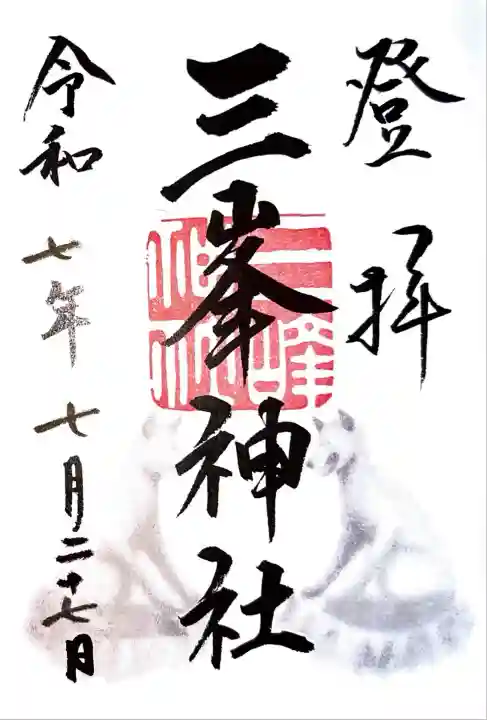 登拝
三峯神社
令和七年七月二十七日